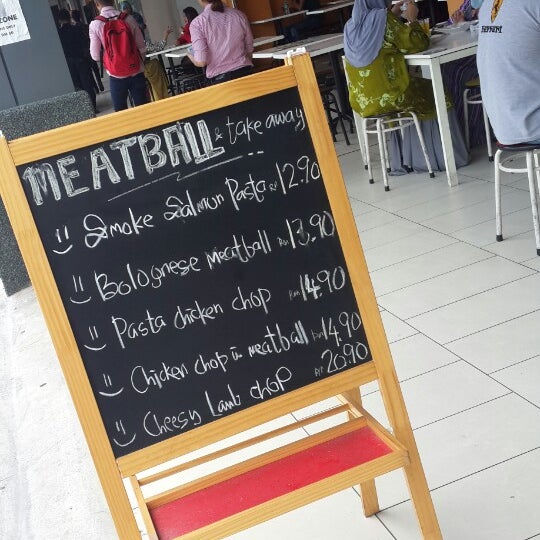 ZONE
MEATBALL & take away
=) Smoke Salmon Pasta RM 12.90
=) Bolognese meatball RM 13.90
=) Pasta chicken chop RM 14.90
=) Chicken chop n meatball RM 14.90
=) Cheesy Lamb chop RM 20.90